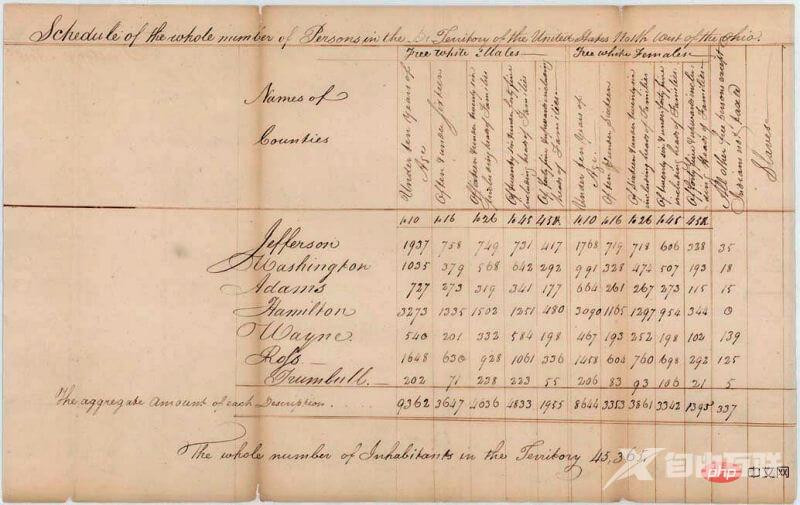 Schedule of the whole number of Persons in the Territory of the United States North West of the Ohio.
Free white Males
Free white Females
Names of
Counties
Under ten Years of Age
Of ten & under sixteen
Of sixteen & under twenty six including heads of Families
Of twenty six & under forty five including heads of Families
Of forty five & upwards including heads of Families
Under ten Years of Age
Of ten & under Sixteen
Of Sixteen & under twenty six including heads of Families
Of twenty six & under forty five including heads of Families
Of forty five & upwards including heads of Families
All other free persons except Indians not taxed
Slaves
to 10 to 16 to 26 to 45 45 & to 10 to 16 to 26 to 45 45 &
Jefferson 1937 758 749 731 417 1768 719 718 606 328 35
Washington 1035 379 568 642 292 991 328 474 507 193 18
Adams 727 273 319 341 177 664 261 267 273 115 15
Hamilton 3273 1335 1502 1251 480 3090 1165 1297 954 344 0
Wayne 540 201 332 584 198 467 193 252 198 102 139
Ross 1648 630 928 1061 336 1458 604 760 698 292 125
Trumbull 202 71 238 223 55 206 83 93 106 21 5
The aggregate amount of each Description. 9362 3647 4636 4833 1955 8644 3353 3861 3342 1395 337
The whole number of Inhabitants in the Territory 45,365
php 中文网